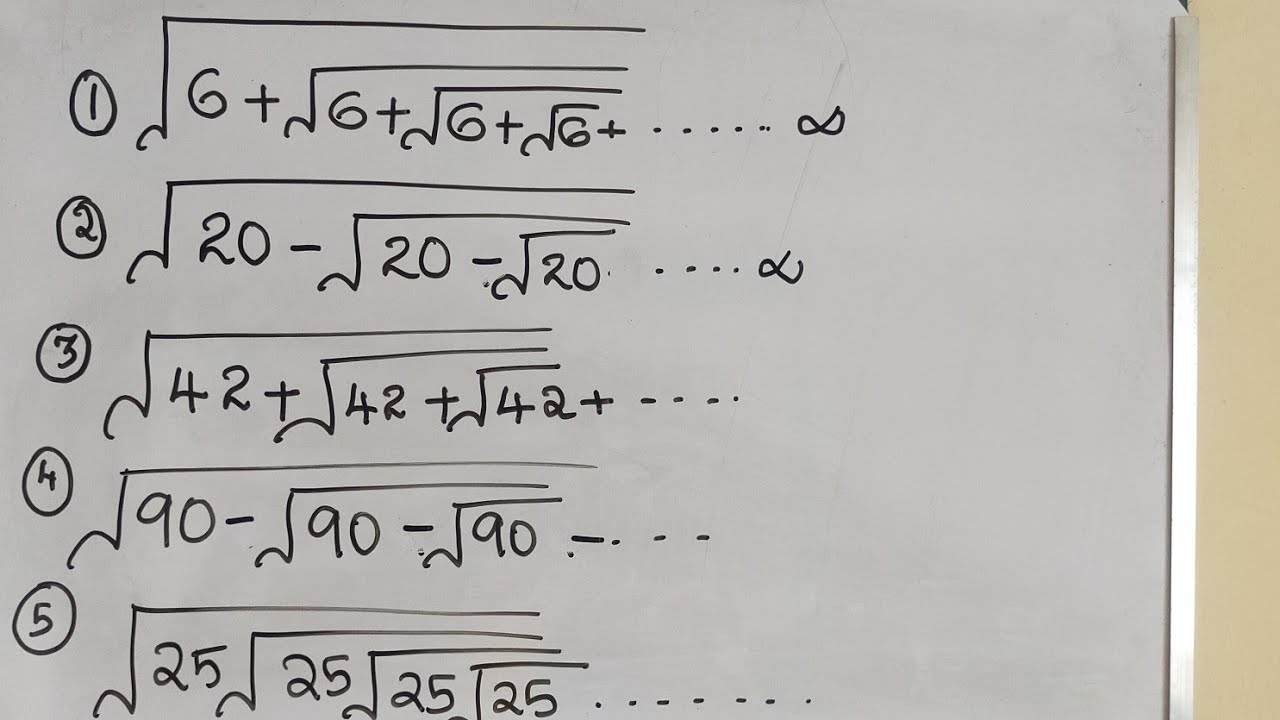 ① √6+√6+√6+√6+ ...... ∞
② √20-√20-√20 ..... ∞
③ √42+√42+√42+ ----.
④ √90-√90-√90 -. - - -
⑤ √25√25√25√25 .......